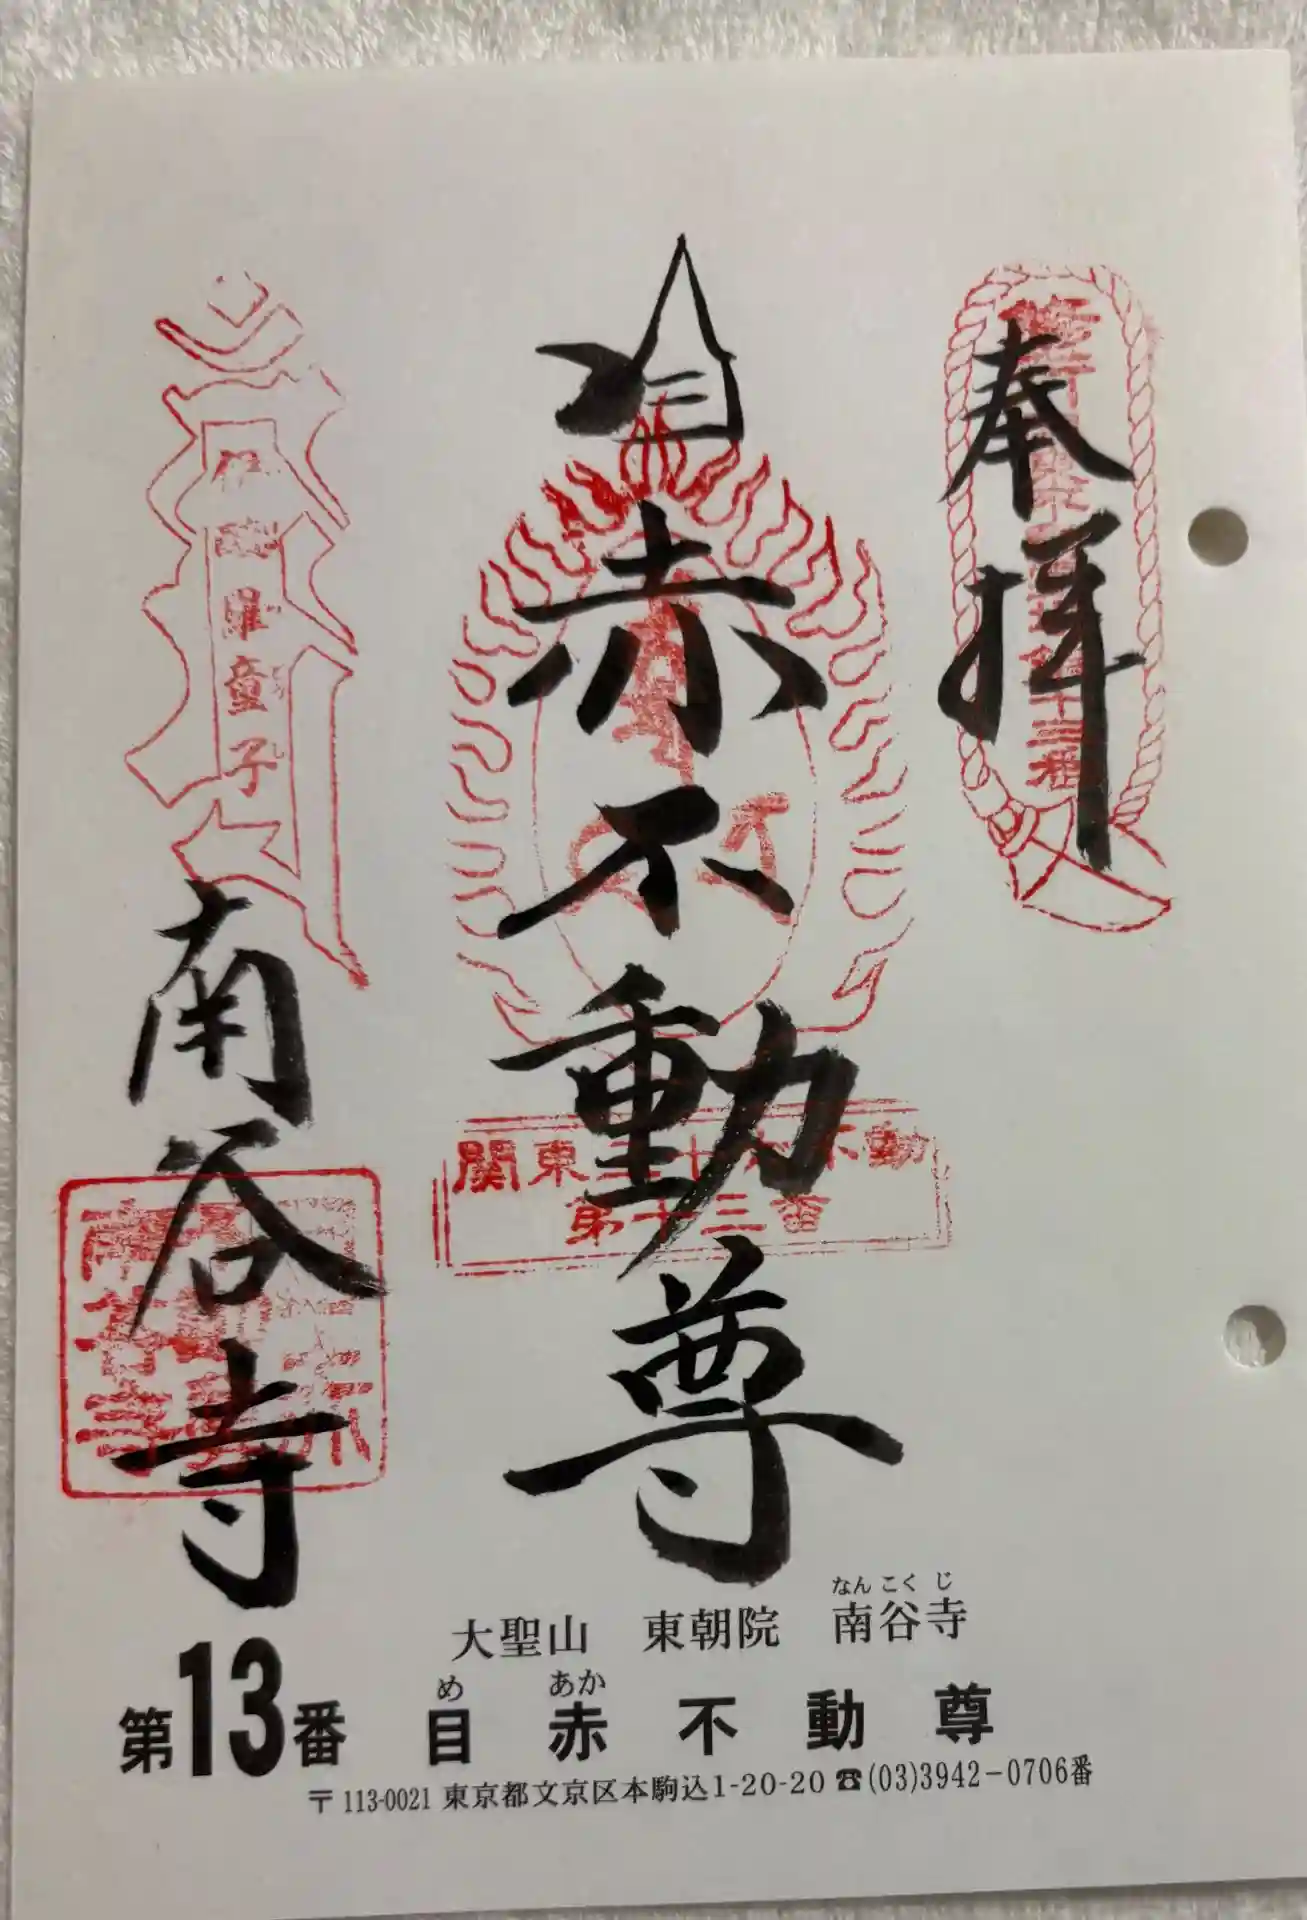 奉拝
目赤不動尊
南谷寺
童子
関東三十六不動
第十三番
なんこくじ
大聖山 東朝院 南谷寺
め あか
第13番 目赤不動尊
〒113-0021 東京都文京区本駒込1-20-20 ☎(03)3942-0706番